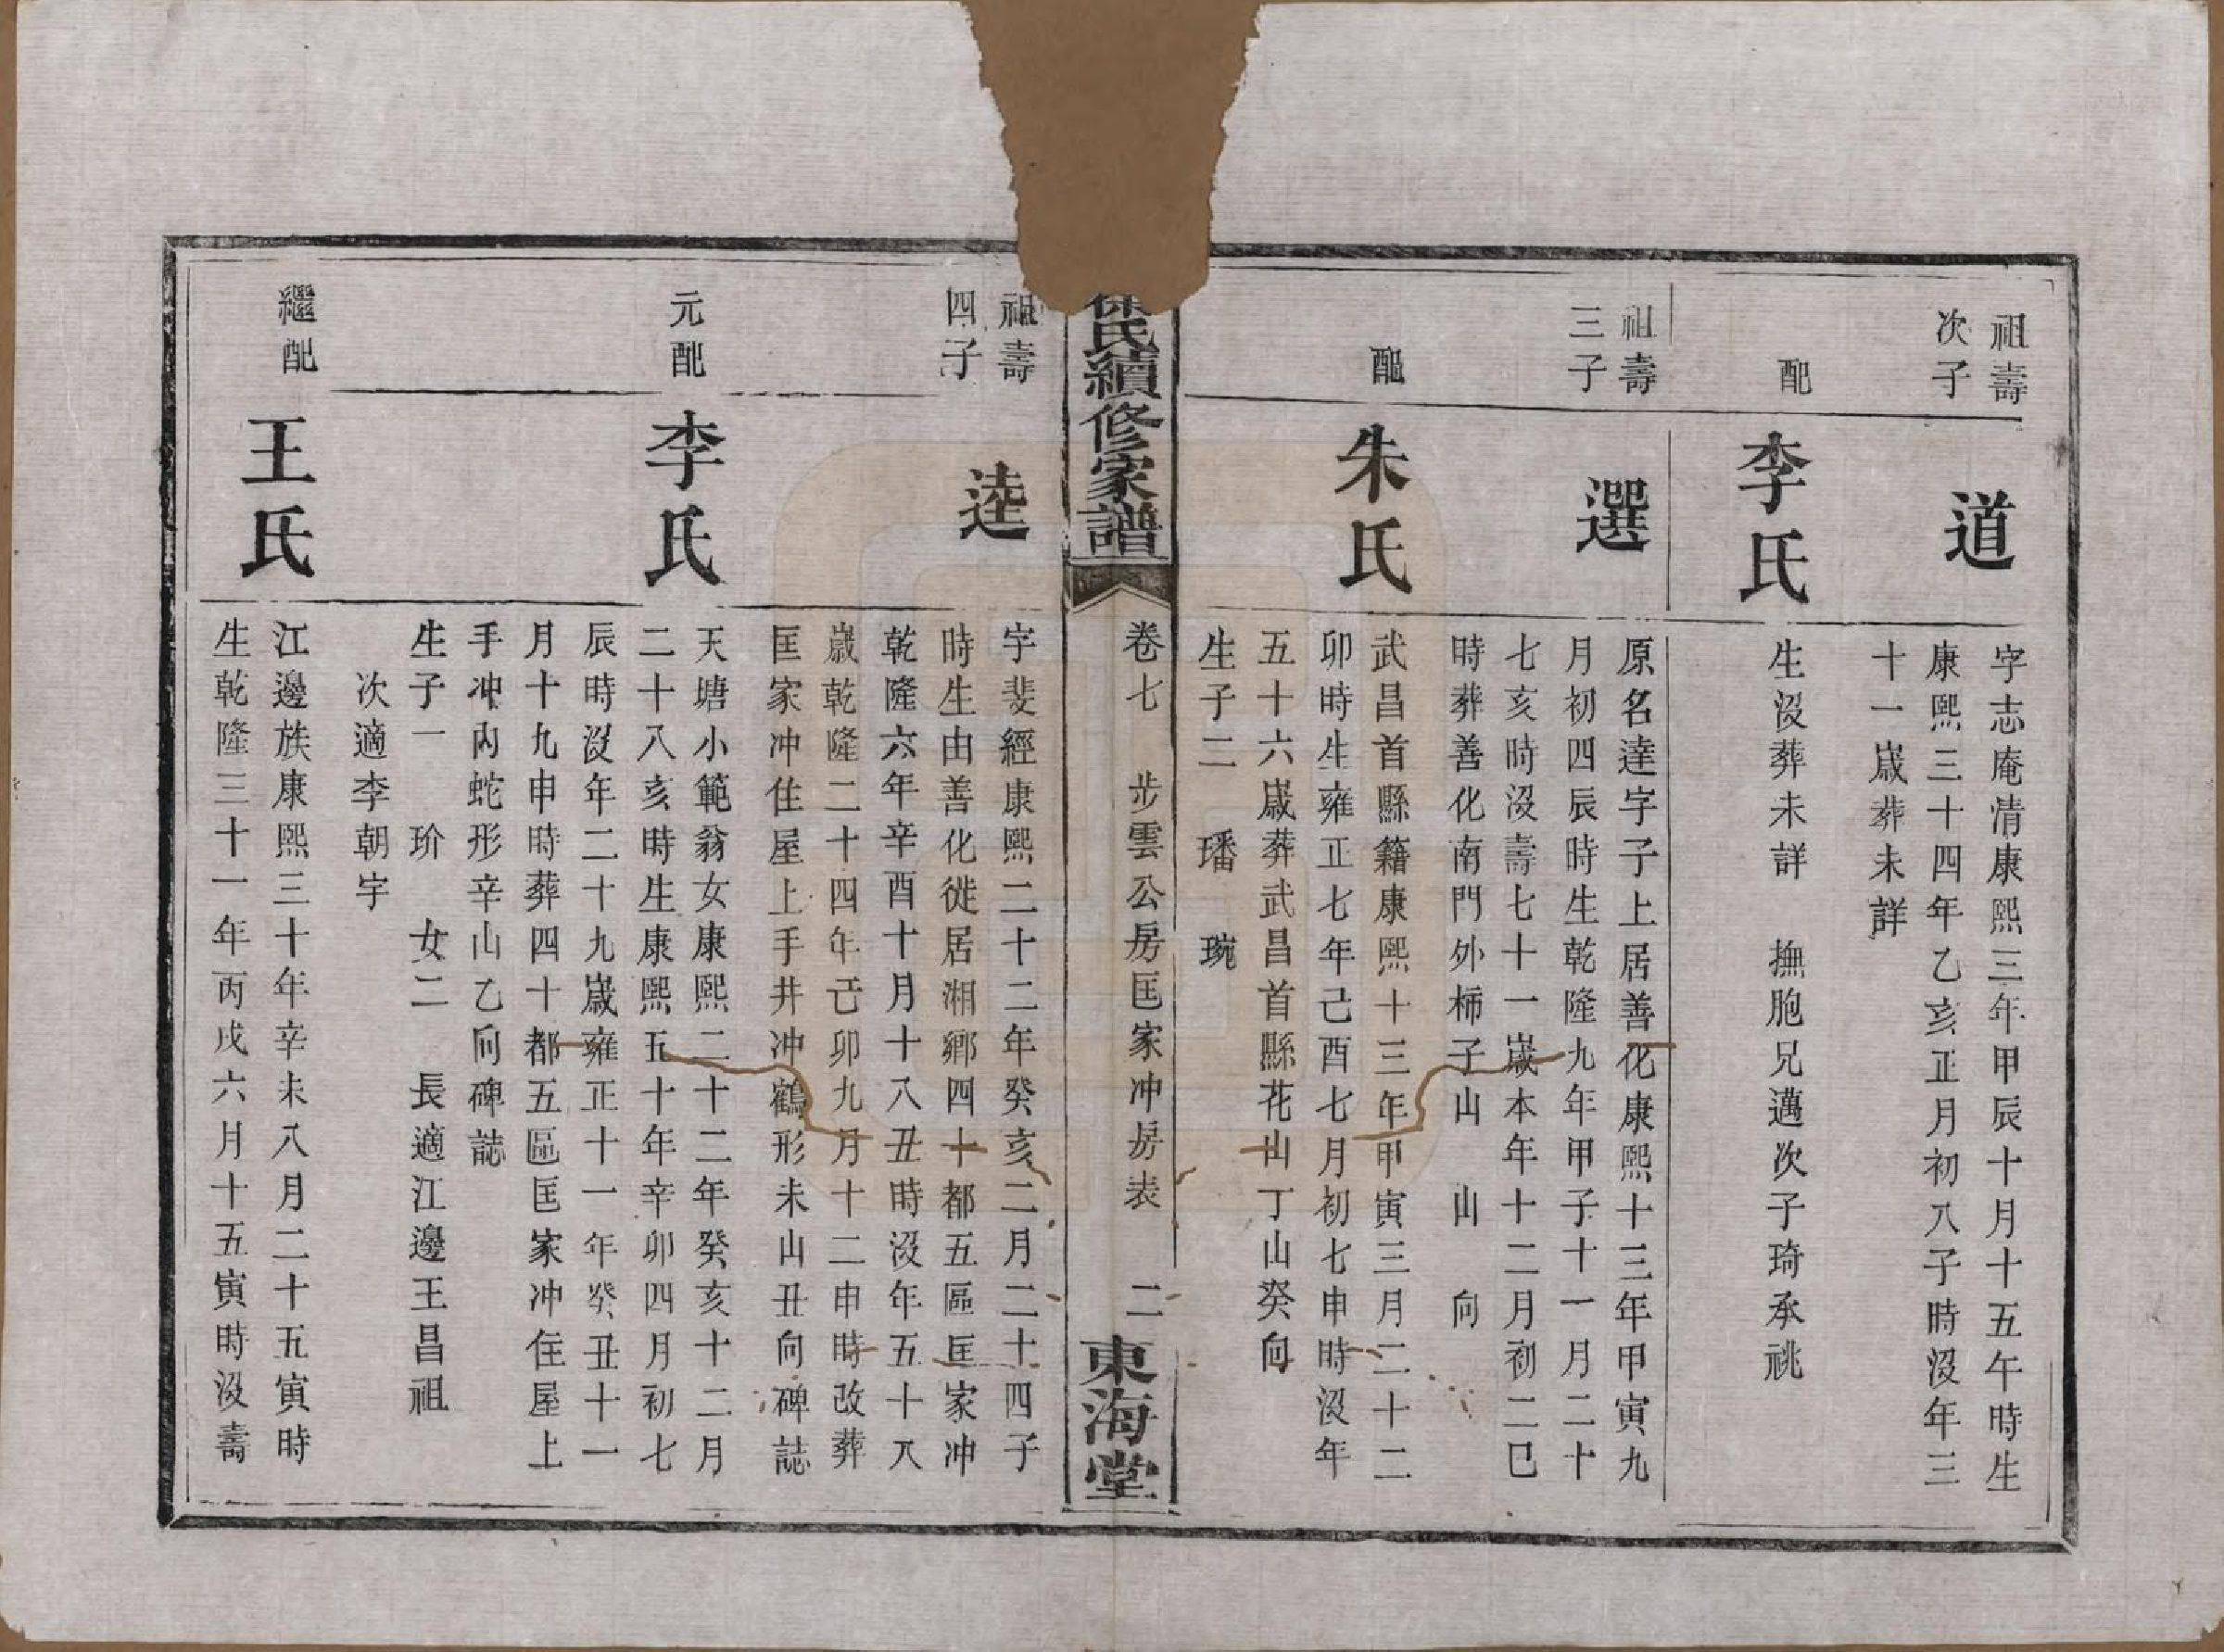 祖壽
次子
道
字志庵清康熙三年甲辰十月十五午時生
康熙三十四年乙亥正月初八子時沒年三
十一歲葬未詳
配
李氏
生沒葬未詳 撫胞兄邁次子琦承祧
祖壽
三子
選
原名達字子上居善化康熙十三年甲寅九
月初四辰時生乾隆九年甲子十一月二十
七亥時沒壽七十一歲本年十二月初二巳
時葬善化南門外柿子山 山 向
配
朱氏
武昌首縣籍康熙十三年甲寅三月二十二
卯時生雍正七年己酉七月初七申時沒年
五十六歲葬武昌首縣花山丁山癸向
生子二 璠 琬
徐氏續修家譜
卷七 步雲公房匡家冲房表 二
東海堂
祖壽
四子
逵
字斐經康熙二十二年癸亥二月二十四子
時生由善化徙居湘鄉四十都五區匡家冲
乾隆六年辛酉十月十八丑時沒年五十八
歲乾隆二十四年己卯九月十二申時改葬
匡家冲住屋上手井冲鶴形未山丑向碑誌
元配
李氏
天塘小範翁女康熙二十二年癸亥十二月
二十八亥時生康熙五十年辛卯四月初七
辰時沒年二十九歲雍正十一年癸丑十一
月十九申時葬四十都五區匡家冲住屋上
手冲內蛇形辛山乙向碑誌
生子一 玠 女二 長適江邊王昌祖
次適李朝宇
繼配
王氏
江邊族康熙三十年辛未八月二十五寅時
生乾隆三十一年丙戌六月十五寅時沒壽